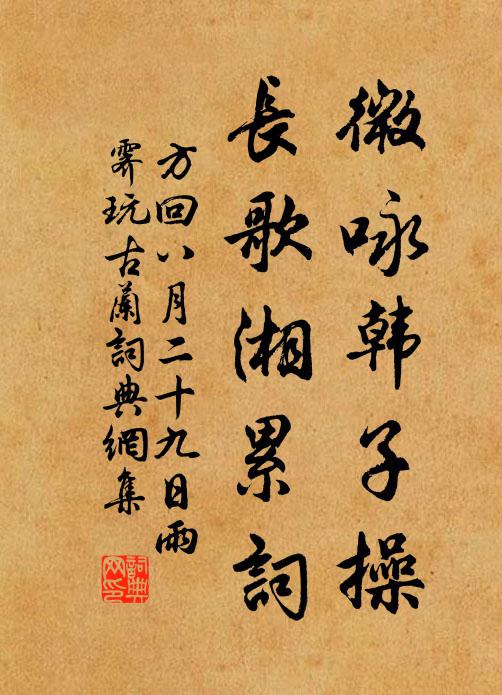 微咏韩子操
長歌湘累詞
方回八月二十九日雨
霽玩古蘭詞典網集
詞典网印